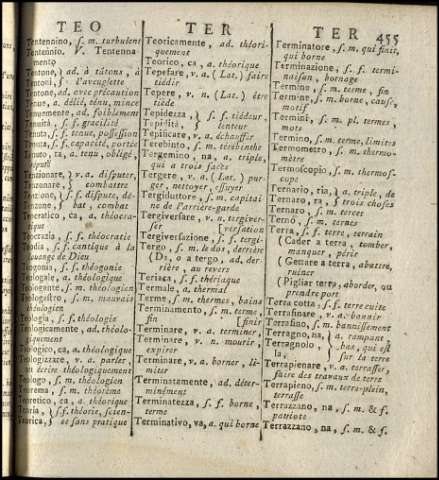 TEO
TER
TER 455
Tentennino, s. m. turbulent
Tentennio. V. Tentenna-
mento
Tentone, } ad. à tâtons, à
Tentoni, } l'aveuglette
Tenue, ad. avec précaution
Tenue, a. délié, ténu, mince
Tenuemente, ad. foiblement
Tenuità, s. f. gracilité
Tenuta, s. f. tenue, possession
Tenuta, s. f. capacité, portée
Tenuto, ta, a. tenu, obligé,
Tenzionare, } v. a. disputer,
Tenzonare, } combattre
Tenzone, } s. f. dispute, dé-
bat, combat
Teocratico, ca, a. théocra-
tique
Teocrazia, s. f. théocratie
Teodia, s. f. cantique à la
louange de Dieu
Teogonia, s. f. théogonie
Teologale, a. théologique
Teologante, s. m. théologien
Teologastro, s. m. mauvais
théologien
Teologia, s. f. théologie
Teologicamente, ad. théolo-
giquement
Teologico, ca, a. théologique
Teologizzare, v. a. parler,
ou écrire théologiquement
Teologo, s. m. théologien
Teorema, s. m. théorème
Teoretico, ca, a. théorique
Teoria, } s. f. théorie, scien-
Teorica, } ce sans pratique
Teoricamente, ad. théori-
quement
Teorico, ca, a. théorique
Tepefare, v. a. (Lat.) faire
tiédir
Tepere, v. n. (Lat.) être
tiède
Tepidezza, } s. f. tiédeur,
Tepidità, } lenteur
Tepificare, v. a. échauffer
Terebinto, s. m. térébinthe
Tergemino, na, a. triple,
qui a trois faces
Tergere, v. a. (Lat.) pur-
ger, nettoyer, essuyer
Tergiduttore, s. m. capitai-
ne de l'arrière-garde
Tergiversare, v. n. tergiver-
ser [versation
Tergiversazione, s. f. tergi-
Tergo, s. m. le dos, derrière
(Da, o a tergo, ad. der-
rière, au revers
Teriaca, s. f. thériaque
Termale, a. thermal
Terme, s. m. thermes, bains
Terminamento, s. m. terme,
fin [finir
Terminare, v. a. terminer,
Terminare, v. n. mourir,
expirer
Terminare, v. a. borner, li-
miter
Terminatamente, ad. déter-
minément
Terminatezza, s. f. borne,
terme
Terminativo, va, a. qui borne
Terminatore, s. m. qui finit,
qui borne
Terminazione, s. f. termi-
naison, bornage
Termine, s. m. terme, fin
Termine, s. m. borne, cause,
motif
Termini, s. m. pl. termes,
mots
Termino, s. m. terme, limites
Termometro, s. m. thermo-
mètre
Termoscopio, s. m. thermos-
cope
Ternario, ria, a. triple, de
Ternaro, ra, } trois choses
Ternaro, s. m. tercet
Terno, s. m. ternes
Terra, s. f. terre, terrain
(Cader a terra, tomber,
manquer, périr
(Gettare a terra, abattre,
ruiner
(Pigliar terra, aborder, ou
prendre port
Terra cotta, s. f. terre cuite
Terrafinare, v. a. bannir
Terrafino, s. m. bannissement
Terragno, na, } a. rampant,
Terragnolo, la, } bas, qui est
sur la terre
Terrapienare, v. a. terrasser,
faire des travaux de terre
Terrapieno, s. m. terre-plein,
terrasse
Terrazzano, na, s. m. & f.
patriote
Terrazzano, na, s. m. & f.